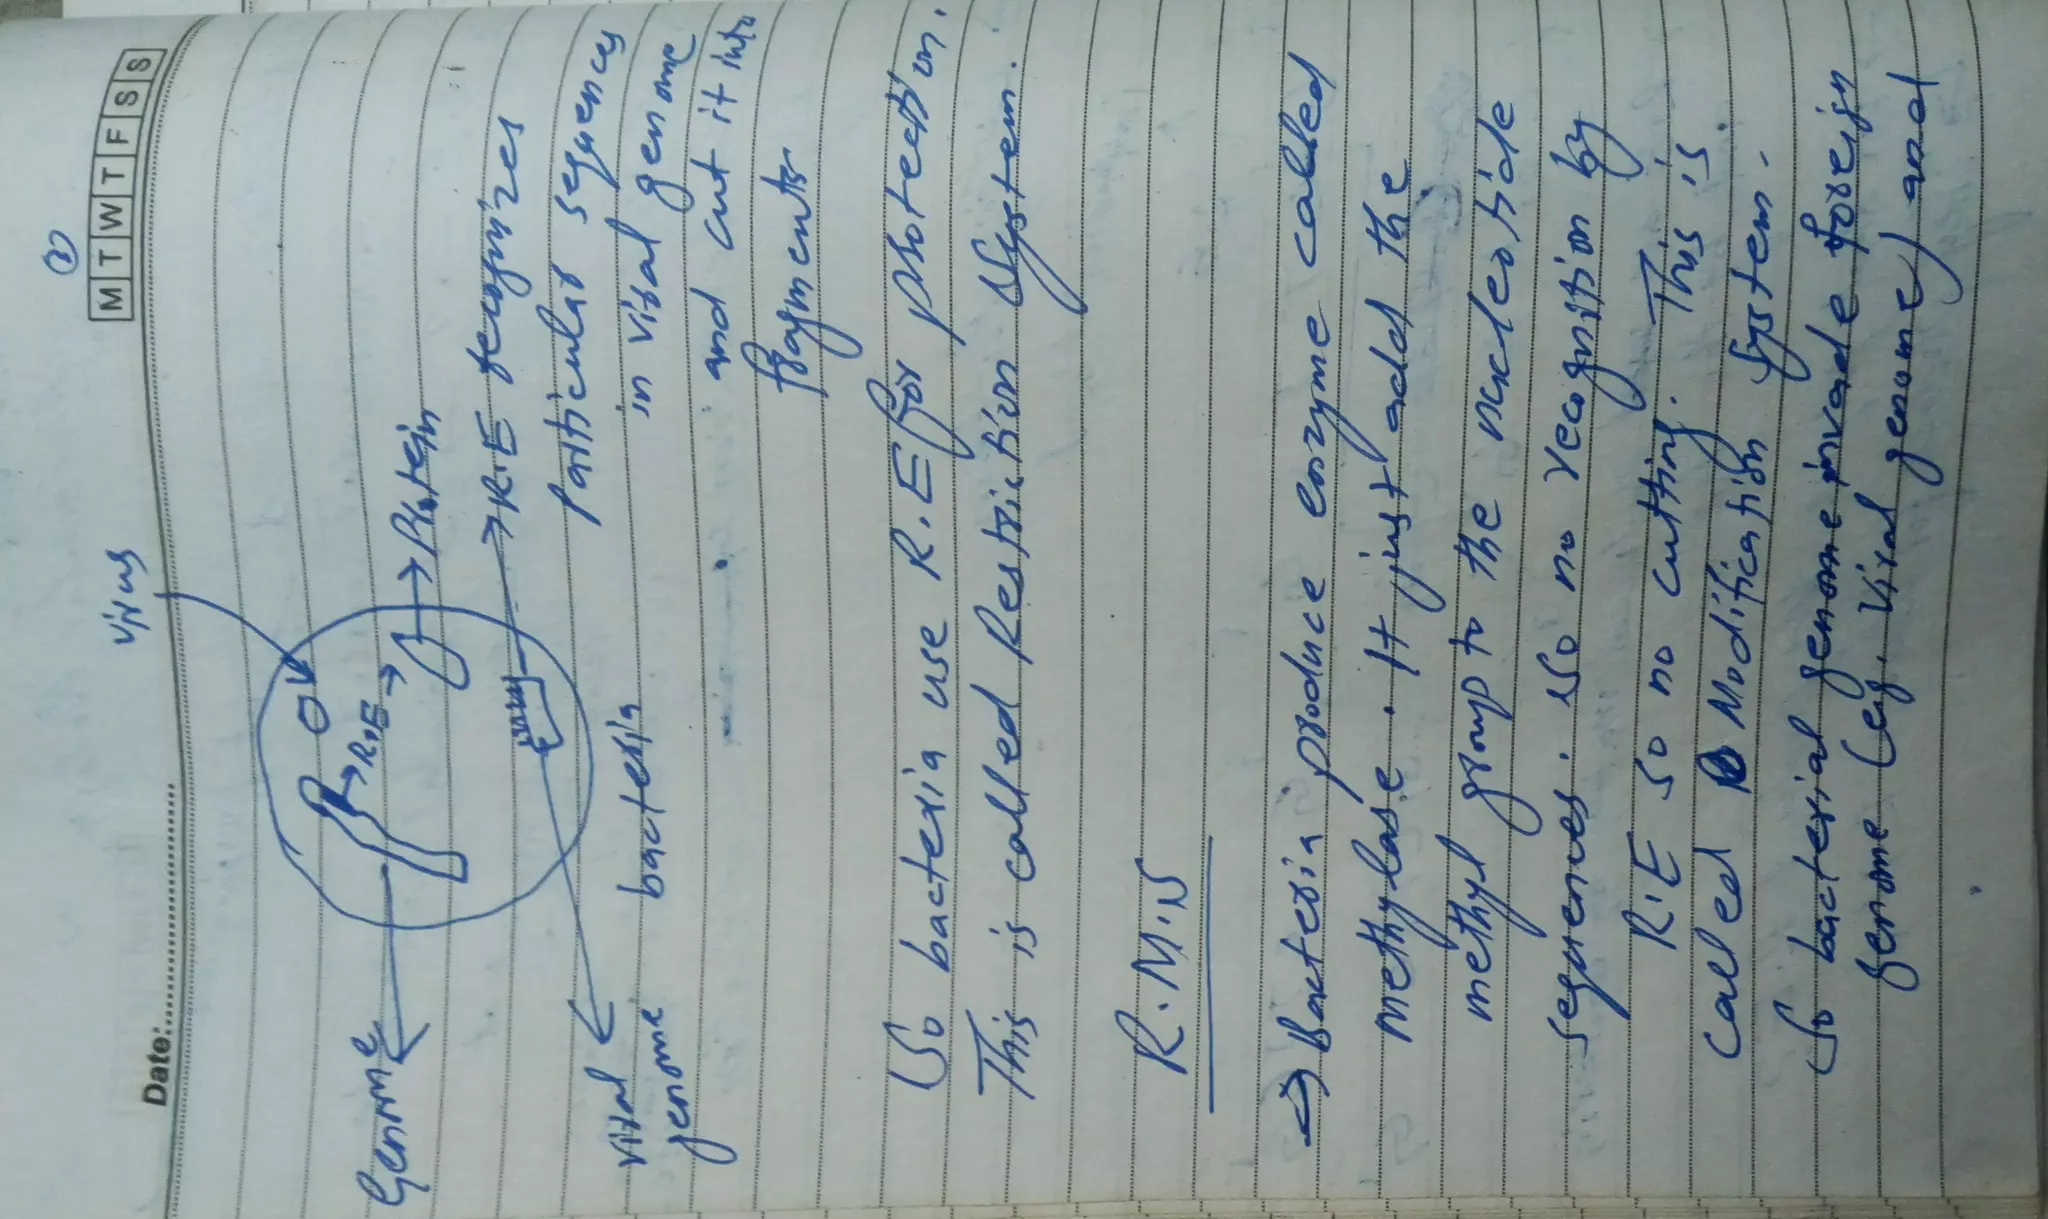 (2)
M T W T F S S
Date:
Virus
Genome
R.E
Protein
R.E recognizes
particular sequences
in viral genome
and cut it into
fragments
viral
genome
bacteria
So bacteria use R.E for protection.
This is called Restriction System.
R.M.S
→ Bacteria produce enzyme called
methylase. It just add the
methyl group to the nucleotide
sequences. So no recognition by
R.E so no cutting. This is
called Modification System.
So bacterial genome invade foreign
genome (eg. Viral genome) and